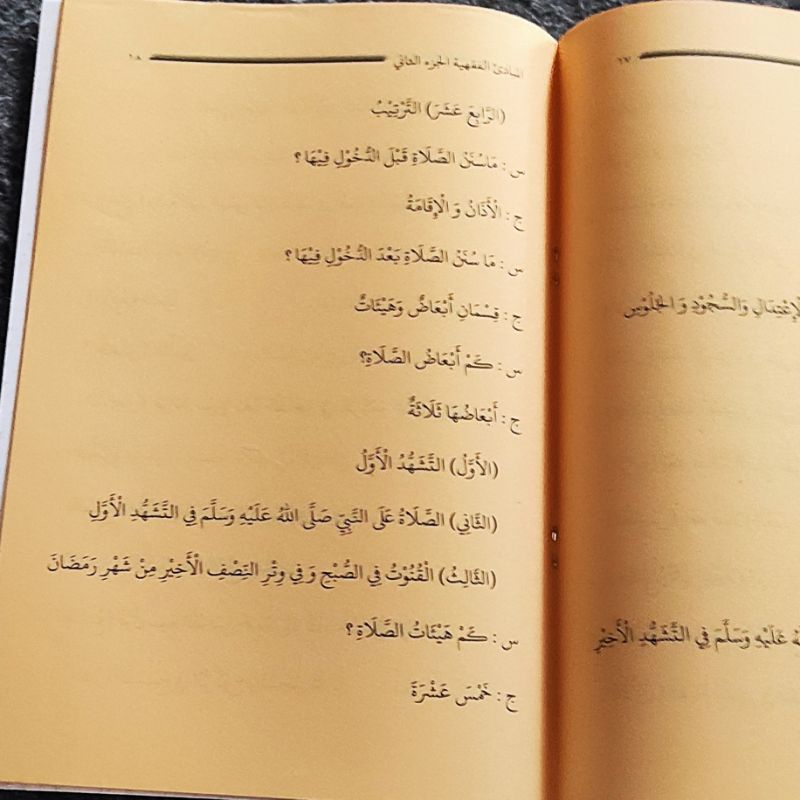 ١٧
الْإِعْتِدَالِ وَالسُّجُوْدِ وَ الْجُلُوْسِ
اللهُ عَلَيْهِ وَسَلَّمَ فِي التَّشَهُّدِ الْأَخِيْرِ
المبادئ الفقهية الجزء الثاني ١٨
(الرَّابِعَ عَشَرَ) التَّرْتِيْبُ
س : مَاسُنَنُ الصَّلَاةِ قَبْلَ الدُّخُوْلِ فِيْهَا ؟
ج : الْأَذَانُ وَ الْإِقَامَةُ
س : مَا سُنَنُ الصَّلَاةِ بَعْدَ الدُّخُوْلِ فِيْهَا ؟
ج : قِسْمَانِ أَبْعَاضٌ وَهَيْئَاتٌ
س : كَمْ أَبْعَاضُ الصَّلَاةِ؟
ج : أَبْعَاضُهَا ثَلَاثَةٌ
(الأَوَّلُ) التَّشَهُّدُ الْأَوَّلُ
(الثَّانِي) الصَّلَاةُ عَلَى النَّبِيِّ صَلَّى اللهُ عَلَيْهِ وَسَلَّمَ فِي التَّشَهُّدِ الْأَوَّلِ
(الثَّالِثُ) الْقُنُوْتُ فِي الصُّبْحِ وَ فِي وِتْرِ النِّصْفِ الْأَخِيْرِ مِنْ شَهْرِ رَمَضَانَ
س : كَمْ هَيْئَاتُ الصَّلَاةِ ؟
ج : خَمْسَ عَشْرَةَ